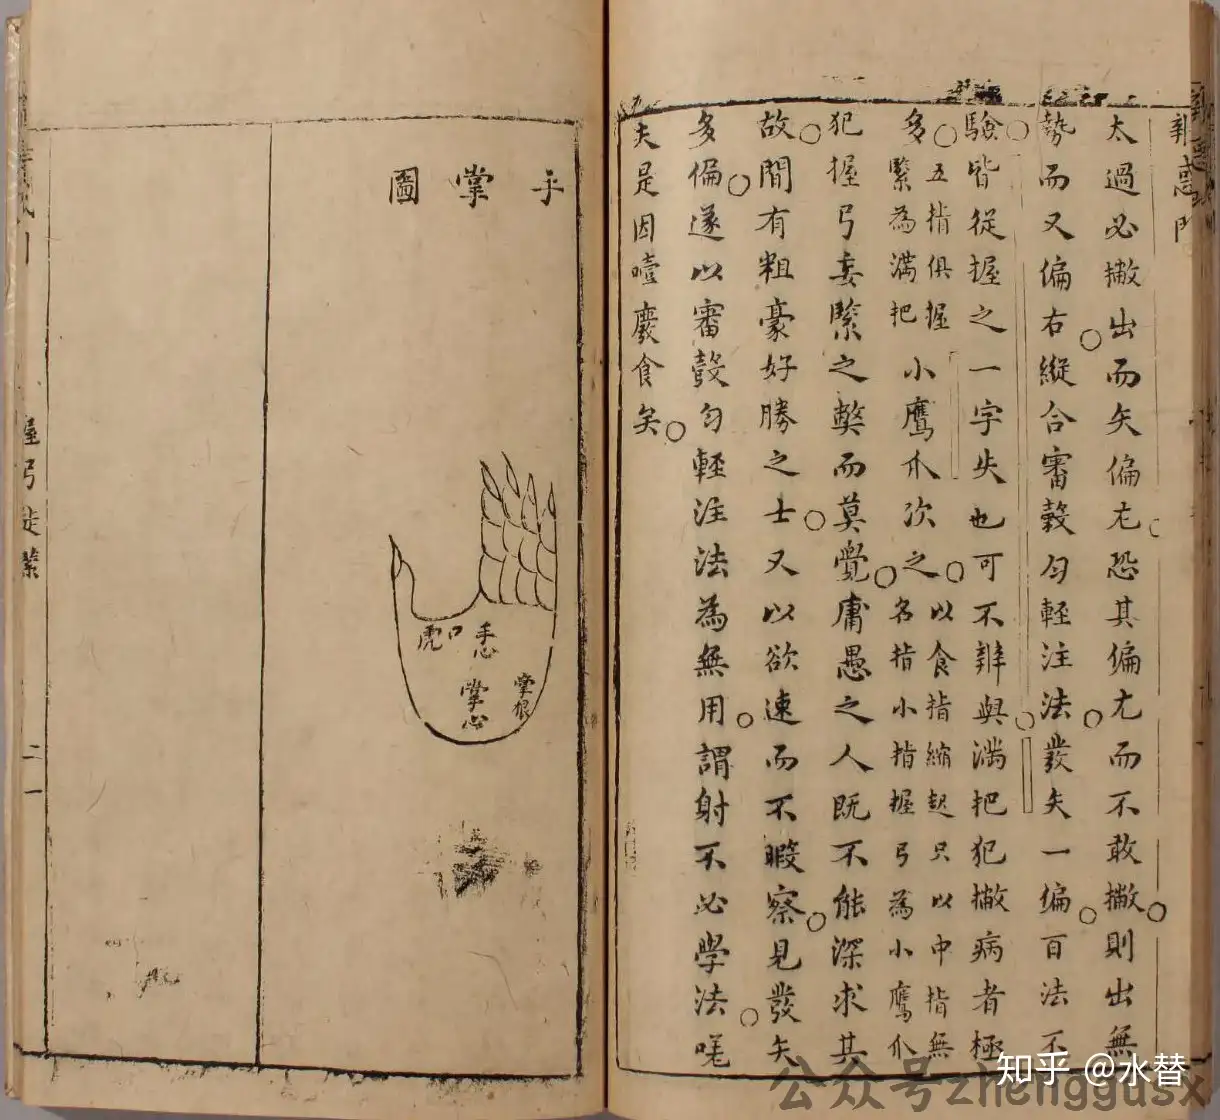 辨惑門
太過必撇出而矢偏尢恐其偏尢而不敢撇則出無
勢而又偏右縱合審彀勻輕注法發矢一偏百法不
驗皆從握之一字失也可不辨與滿把犯撇病者極
多五指俱握緊為滿把小鷹爪次之以食指縮起只以中指無名指小指握弓為小鷹爪
犯握弓妄緊之獘而莫覺庸愚之人既不能深求其
故間有粗豪好勝之士又以欲速而不暇察見發矢
多偏遂以審彀勻輕注法為無用謂射不必學法嗟
夫是因噎廢食矣
手掌圖
虎口
手心
掌心
掌根
握弓徒緊
二一
知乎 @水替
公众号zhenggusx